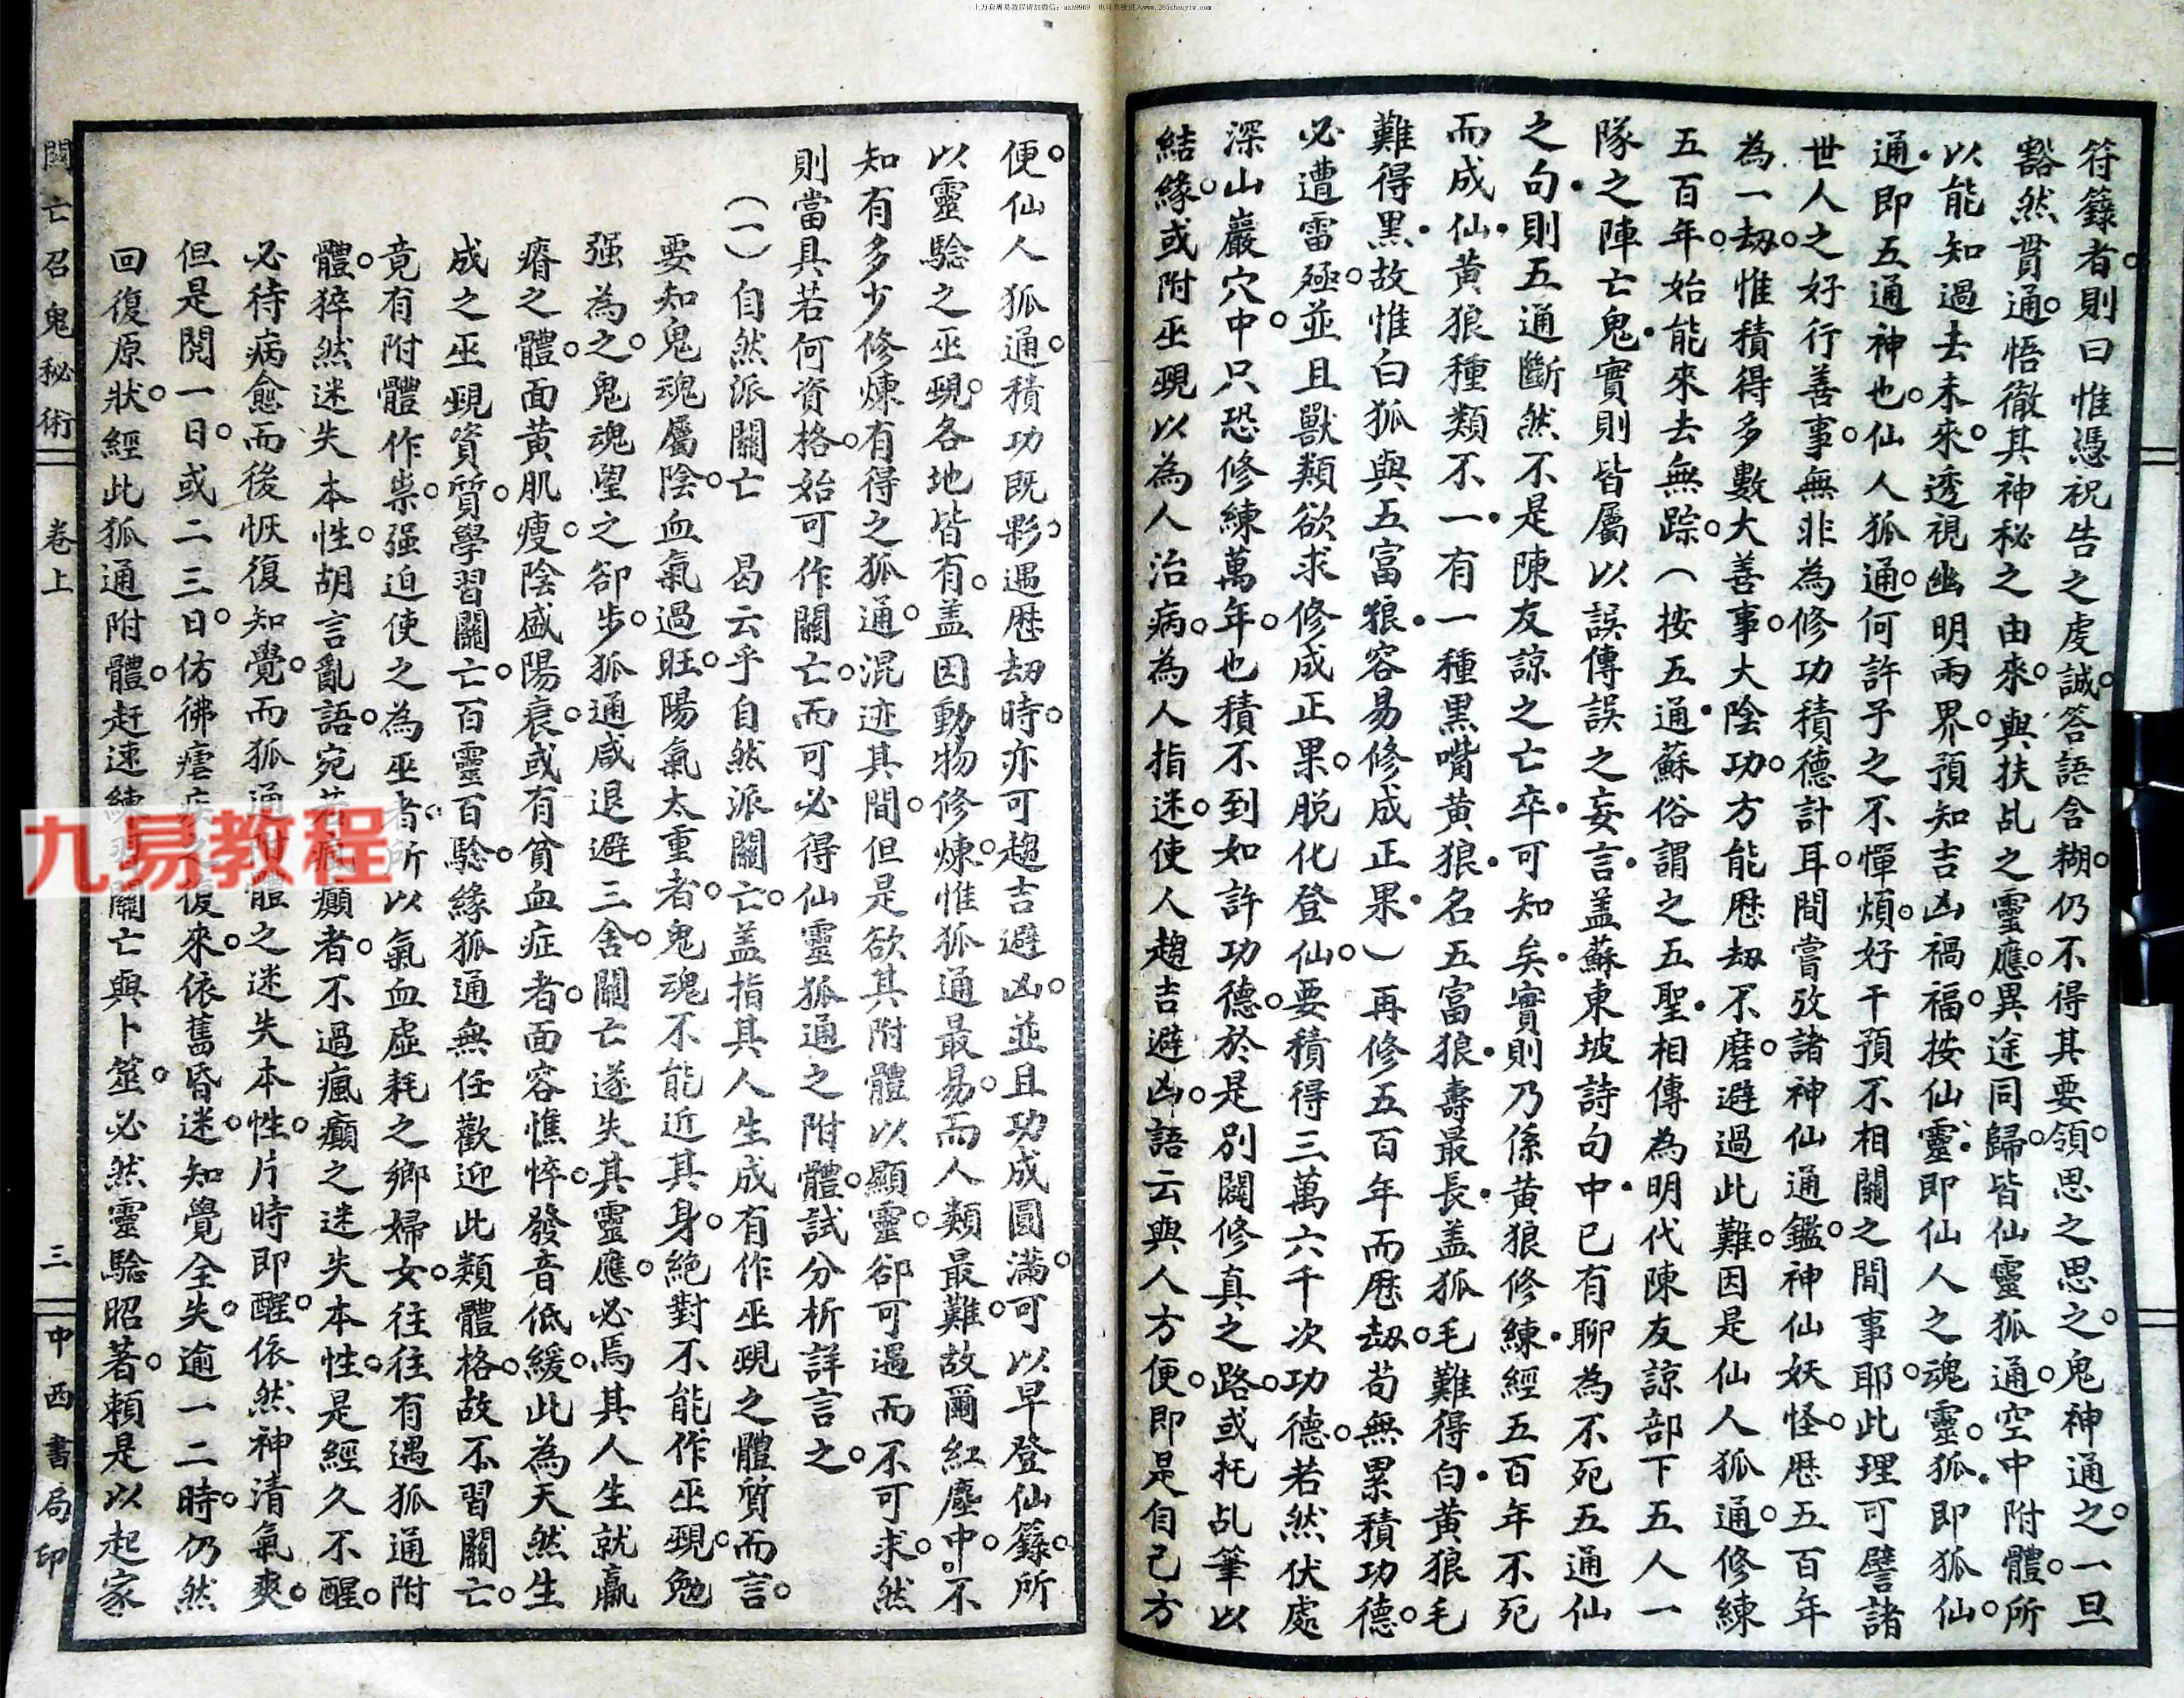 上万套周易教程请加微信：axh9969　也可直接进入www.265zhouyiw.com
符籙者。則曰惟憑祝告之虔誠。答語含糊。仍不得其要領。思之思之。鬼神通之。一旦
豁然貫通。悟徹其神秘之由來。與扶乩之靈應。異途同歸。皆仙靈狐通。空中附體。所
以能知過去未來。透視幽明兩界。預知吉凶禍福。按仙靈。即仙人之魂靈。狐。即狐仙。
通。即五通神也。仙人狐通。何許子之不憚煩。好干預不相關之間事耶。此理可譬諸
世人之好行善事。無非為修功積德計耳。間嘗攷諸神仙通鑑。神仙妖怪。歷五百年
為一刼。惟積得多數大善事。大陰功。方能歷刼不磨。避過此難。因是仙人狐通。修練
五百年。始能來去無踪。（按五通。蘇俗謂之五聖。相傳為明代陳友諒部下五人一
隊之陣亡鬼。實則皆屬以誤傳誤之妄言。盖蘇東坡詩句中。已有聊為不死五通仙
之句。則五通斷然不是陳友諒之亡卒。可知矣。實則乃係黃狼修練。經五百年不死
而成仙。黃狼種類不一。有一種黑嘴黃狼。名五富狼。壽最長。盖狐毛難得白。黃狼毛
難得黑。故惟白狐與五富狼。容易修成正果。）再修五百年而歷刼。苟無累積功德。
必遭雷殛。並且獸類欲求修成正果。脫化登仙。要積得三萬六千次功德。若然伏處
深山巖穴中。只恐修練萬年。也積不到如許功德。於是別闢修真之路。或托乩筆以
結緣。或附巫覡以為人治病。為人指迷。使人趨吉避凶。語云與人方便。即是自己方
便。仙人狐通。積功既夥。遇歷劫時。亦可趨吉避凶。並且功成圓滿。可以早登仙籙。所
以靈驗之巫覡。各地皆有。盖因動物修煉。惟狐通最易。而人類最難。故爾紅塵中。不
知有多少修煉有得之狐通。混迹其間。但是欲其附體以顯靈。卻可遇而不可求。然
則當具若何資格。始可作關亡。而可必得仙靈狐通之附體。試分析詳言之。
（一）自然派關亡　曷云乎自然派關亡。盖指其人生成有作巫覡之體質而言。
要知鬼魂屬陰。血氣過旺。陽氣太重者。鬼魂不能近其身。絕對不能作巫覡。勉
强為之。鬼魂望之卻步。狐通咸退避三舍。關亡遂失其靈應。必焉其人生就羸
瘠之體。面黃肌瘦。陰盛陽衰。或有貧血症者。面容憔悴。發音低緩。此為天然生
成之巫覡資質。學習關亡。百靈百驗。緣狐通無任歡迎此類體格。故不習關亡。
竟有附體作祟。强迫使之為巫者。所以氣血虛耗之鄉婦女。往往有遇狐通附
體。猝然迷失本性。胡言亂語。宛若瘋癲者。不過瘋癲之迷失本性。是經久不醒。
必待病愈而後恢復知覺。而狐通附體之迷失本性。片時即醒。依然神清氣爽。
但是閱一日。或二三日。仿彿瘧疾之復來。依舊昏迷。知覺全失。逾一二時。仍然
回復原狀。經此狐通附體。赶速練習關亡與卜筮。必然靈驗昭著。賴是以起家
關亡召鬼秘術　卷上　三　中西書局印
九易教程